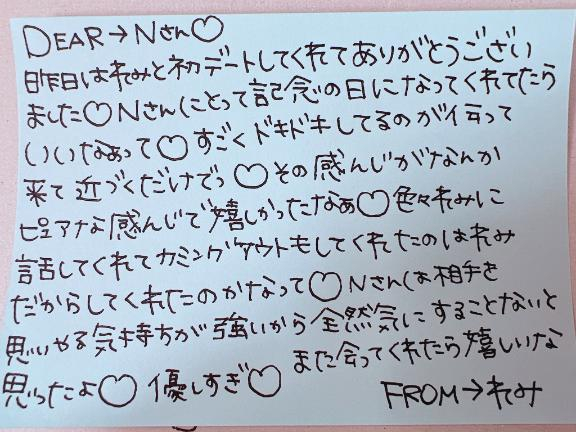 DEAR→Nさん♡
昨日はれみと初デートしてくれてありがとうござい
ました♡Nさんにとって記念の日になってくれてたら
いいなぁって♡すごくドキドキしてるのが伝って
来て近づくだけでっ♡その感んじがなんか
ピュアナな感んじで嬉しかったなぁ♡色々れみに
話してくれてカミングアウトもしてくれたのはれみ
だからしてくれたのかなって♡Nさんはお相手を
思いやる気持ちが強いから全然気にすることないと
思ったよ♡優しすぎ♡また会ってくれたら嬉しいな
FROM→れみ